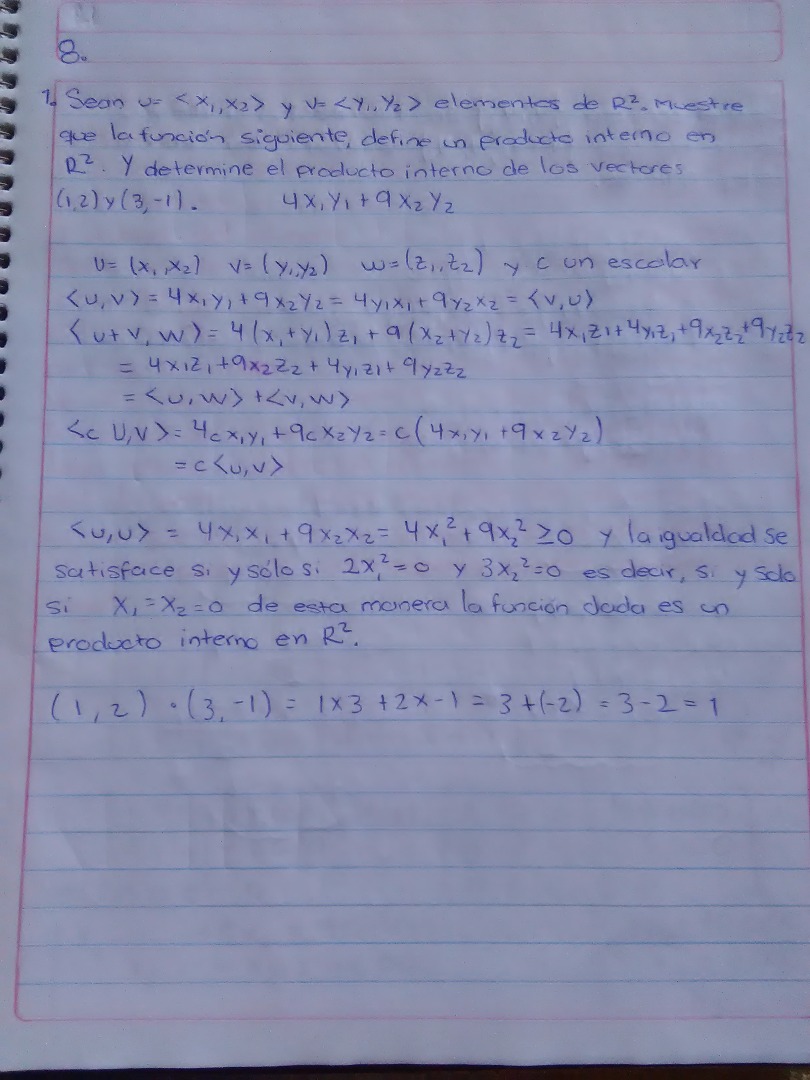 8.
1. Sean u= <x₁,x₂> y v= <y₁,y₂> elementos de R². Muestre
que la función siguiente, define un producto interno en
R². Y determine el producto interno de los vectores
(1,2) y (3,-1). 4x₁y₁ + 9x₂y₂
U= (x₁,x₂) v= (y₁,y₂) w=(z₁,z₂) y c un escalar
<u,v> = 4x₁y₁ + 9x₂y₂ = 4y₁x₁ + 9y₂x₂ = <v,u>
<u+v, w> = 4(x₁+y₁)z₁ + 9(x₂+y₂)z₂ = 4x₁z₁+4y₁z₁+9x₂z₂+9y₂z₂
= 4x₁z₁+9x₂z₂ + 4y₁z₁+ 9y₂z₂
= <u,w> + <v,w>
<c U,v> = 4cx₁y₁ + 9cx₂y₂ = c(4x₁y₁ + 9x₂y₂)
= c<u,v>
<u,u> = 4x₁x₁ + 9x₂x₂ = 4x₁² + 9x₂² ≥0 y la igualdad se
satisface si y sólo si 2x₁²=0 y 3x₂²=0 es decir, si y solo
si x₁=x₂=0 de esta manera la función dada es un
producto interno en R².
(1,2) · (3,-1) = 1x3 + 2x-1 = 3+(-2) = 3-2 = 1